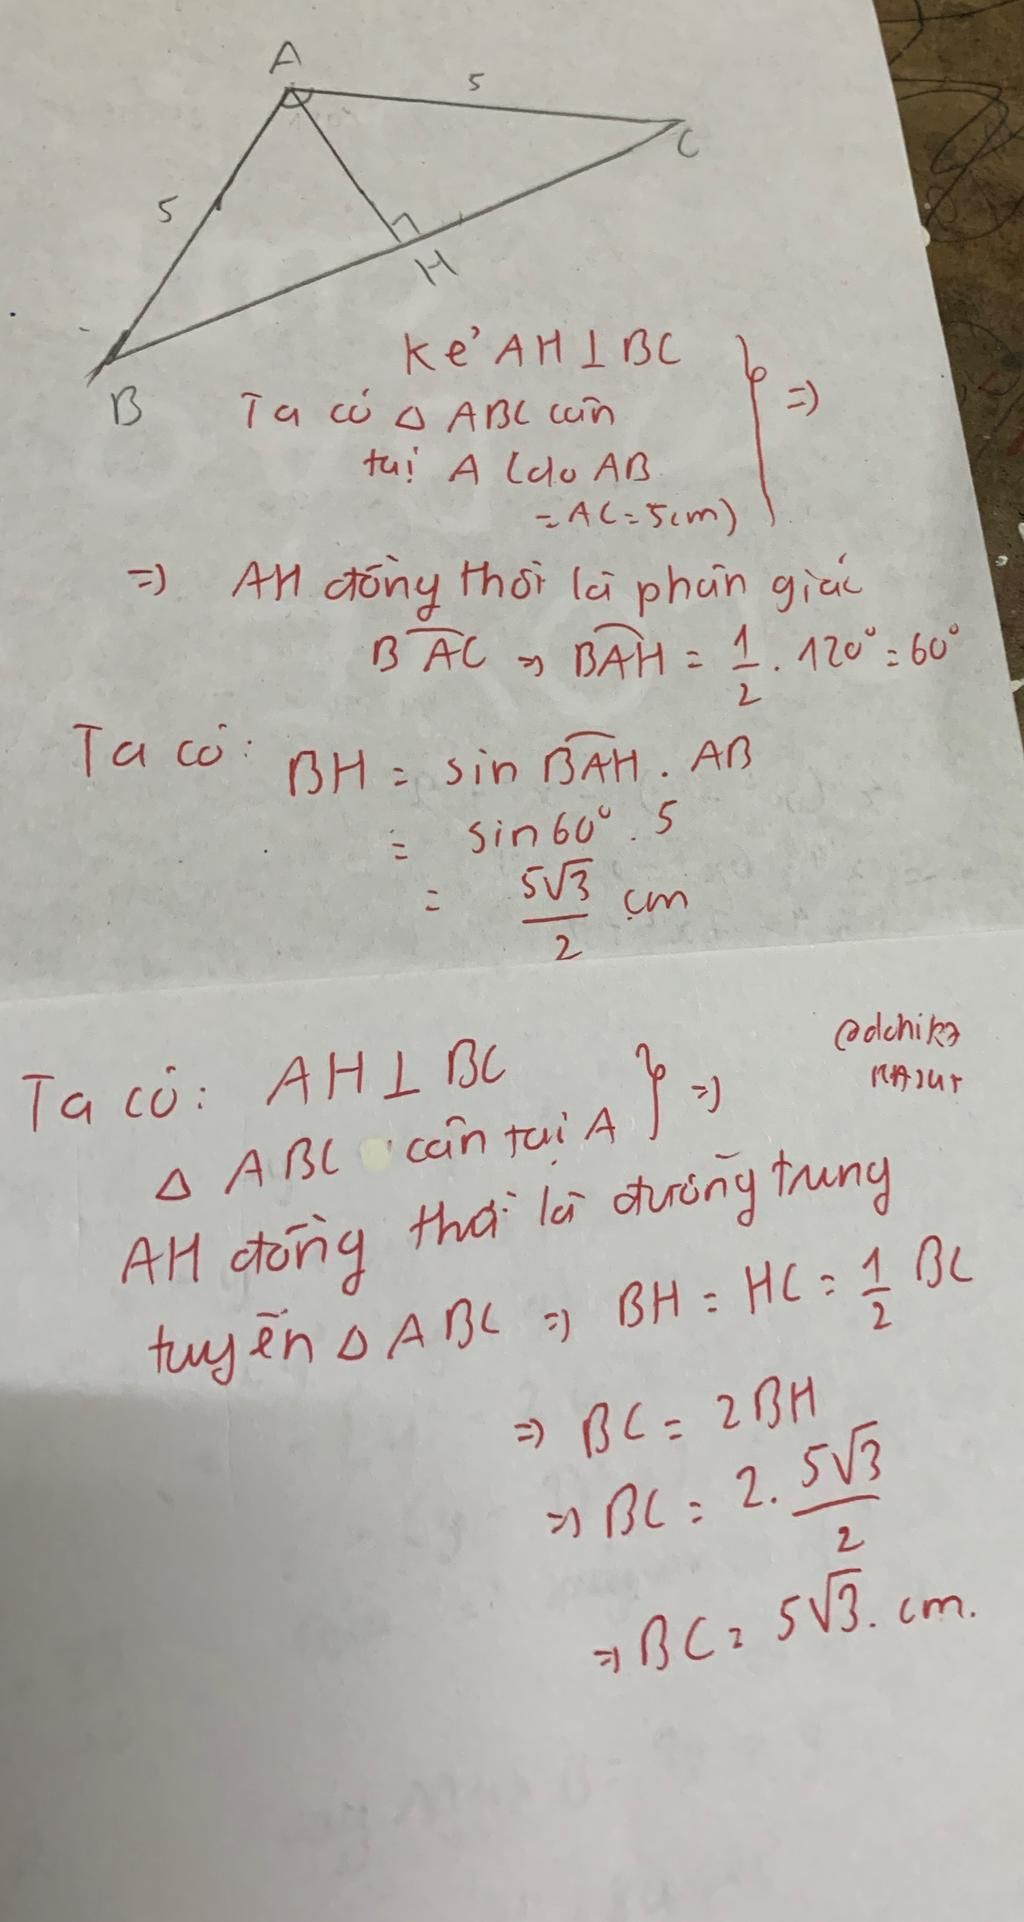 A
5
C
5
H
B
Kẻ AH ⊥ BC
Ta có △ ABC cân
tại A (do AB
= AC = 5cm) } =>
=> AH đồng thời là phân giác
BAC => BAH = 1/2 . 120° = 60°
Ta có: BH = sin BAH . AB
= sin 60° . 5
= 5√3/2 cm
Ta có: AH ⊥ BC
△ ABC cân tại A } =>
AH đồng thời là đường trung
tuyến △ ABC => BH = HC = 1/2 BC
=> BC = 2BH
=> BC = 2. 5√3/2
=> BC = 5√3. cm.